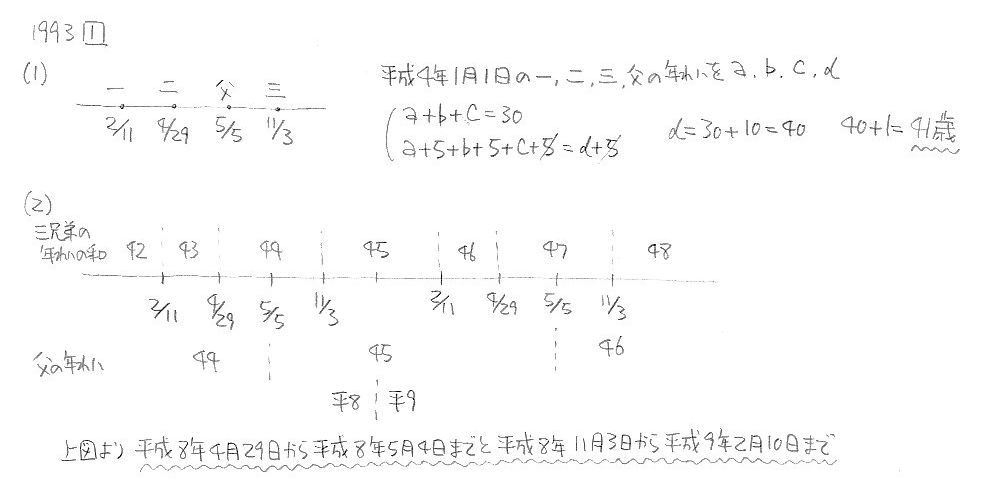 1993 1
(1)
一 二 父 三
2/11 4/29 5/5 11/3
平成4年1月1日の一,二,三,父の年れいをa,b,c,d
a+b+c=30
a+5+b+5+c+5=d+5
d=30+10=40 40+1=41歳
(2)
三兄弟の
年れいの和 42 43 44 45 46 47 48
2/11 4/29 5/5 11/3 2/11 4/29 5/5 11/3
父の年れい 44 45 46
平8 平9
上図より 平成8年4月29日から平成8年5月4日までと平成8年11月3日から平成9年2月10日まで